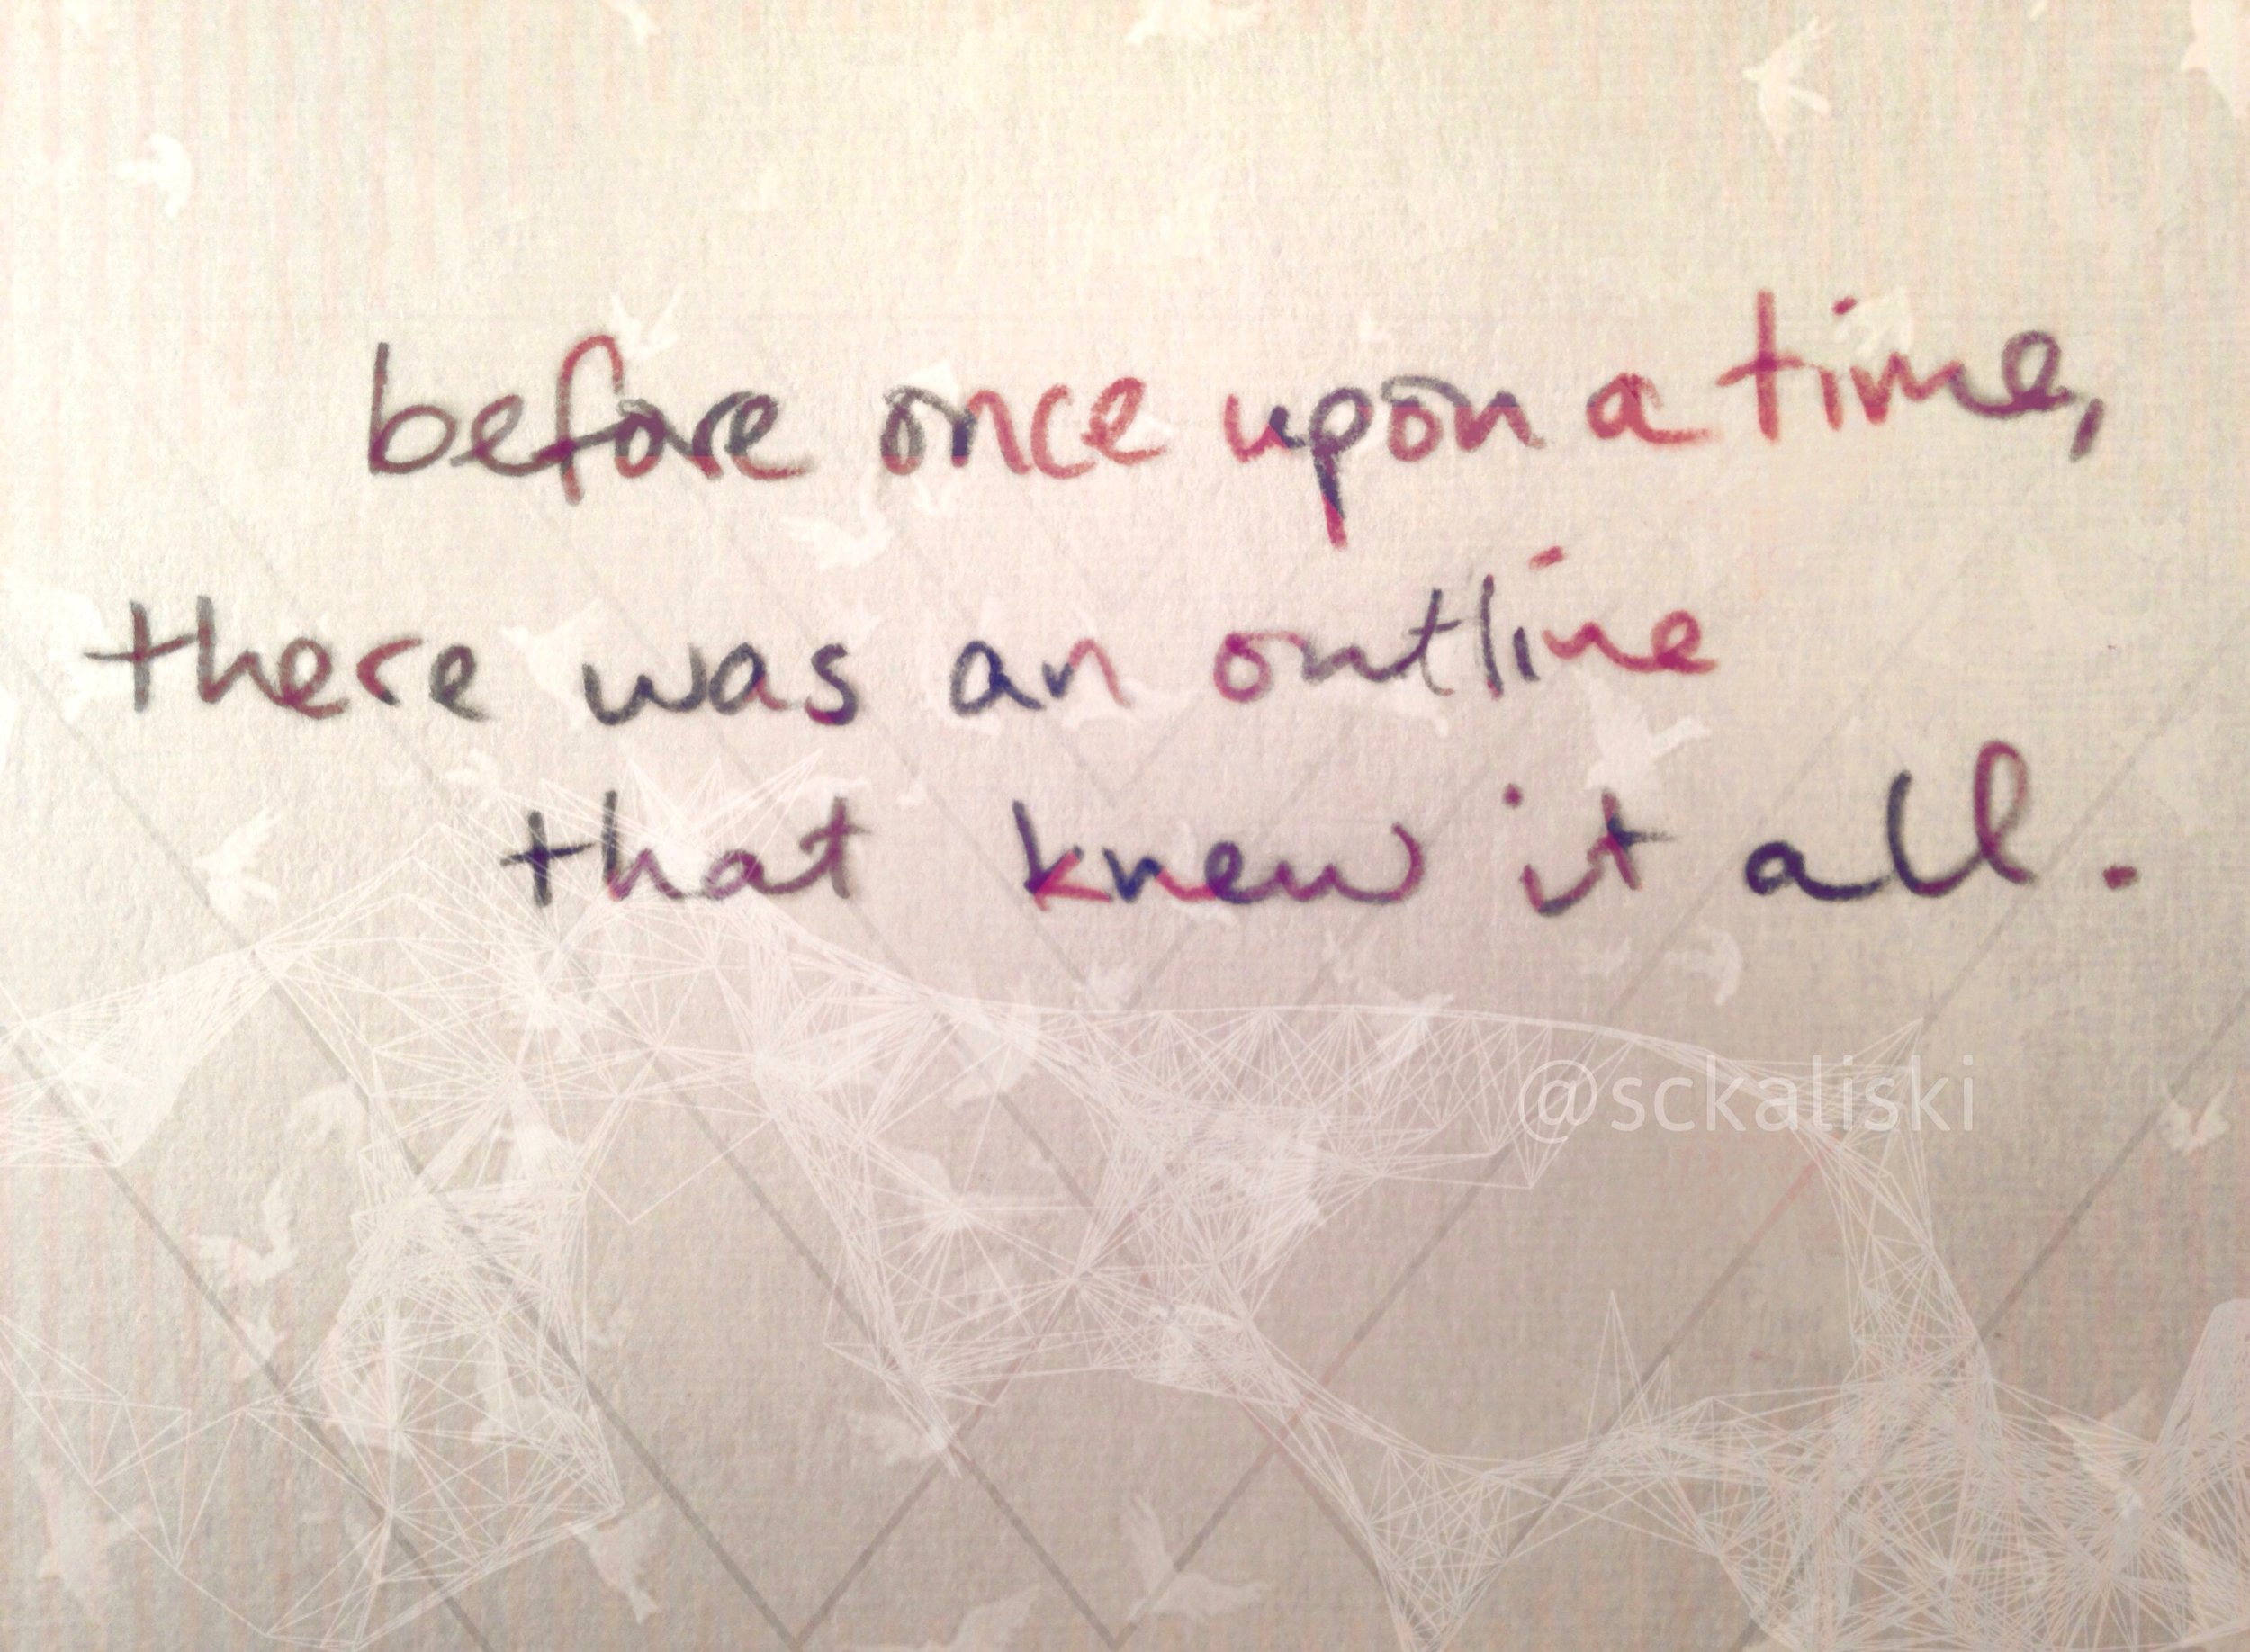 before once upon a time,
there was an outline
that knew it all.
@sckaliski